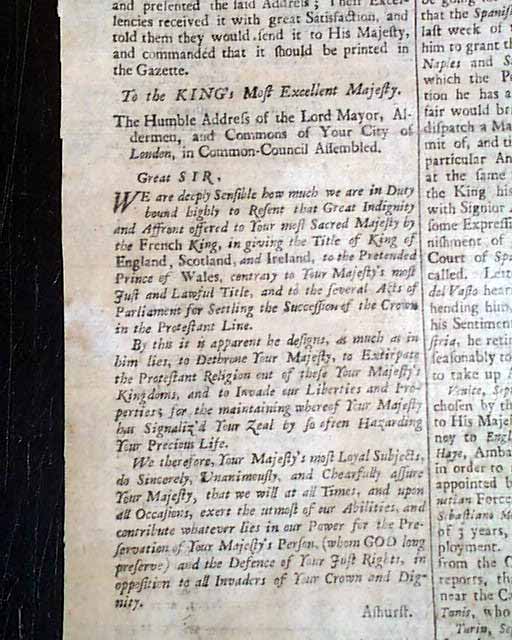 and presented the said Addreſs; Their Excel-
lencies received it with great Satisfaction, and
told them they would ſend it to His Majeſty,
and commanded that it ſhould be printed in
the Gazette.
To the KING's Moſt Excellent Majeſty.
The Humble Addreſs of the Lord Mayor, Al-
dermen, and Commons of Your City of
London, in Common-Council Aſſembled.
Great SIR,
WE are deeply Senſible how much we are in Duty
bound highly to Reſent that Great Indignity
and Affront offered to Your moſt Sacred Majeſty by
the French King, in giving the Title of King of
England, Scotland, and Ireland, to the Pretended
Prince of Wales, contrary to Your Majeſty's moſt
Juſt and Lawful Title, and to the ſeveral Acts of
Parliament for Settling the Succeſſion of the Crown
in the Proteſtant Line.
By this it is apparent he deſigns, as much as in
him lies, to Dethrone Your Majeſty, to Extirpate
the Proteſtant Religion out of theſe Your Majeſty's
Kingdoms, and to Invade our Liberties and Pro-
perties; for the maintaining whereof Your Majeſty
has Signaliz'd Your Zeal by ſo often Hazarding
Your Precious Life.
We therefore, Your Majeſty's moſt Loyal Subjects,
do Sincerely, Unanimouſly, and Chearfully aſſure
Your Majeſty, that we will at all Times, and upon
all Occaſions, exert the utmoſt of our Abilities, and
contribute whatever lies in our Power for the Pre-
ſervation of Your Majeſty's Perſon, (whom GOD long
preſerve) and the Defence of Your Juſt Rights, in
oppoſition to all Invaders of Your Crown and Dig-
nity.
Aſhurſt.
that the Spaniſ
laſt week of
him to grant th
Naples and
which the
tion he has a
fair would
diſpatch a
mit of, and
particular
at the ſame
the King his
with Signior
ſome
niſhment of
Court of
called.
del Vaſto
hending him,
his Sentiment
he
ſeaſonably to
to take up
Venice,
choſen by
to His
ney to
Haye,
in order to
appointed
Force
Sebaſtiano
of 3 years,
ployment.
from the
reports,
near the
Tanis, who
Turin,